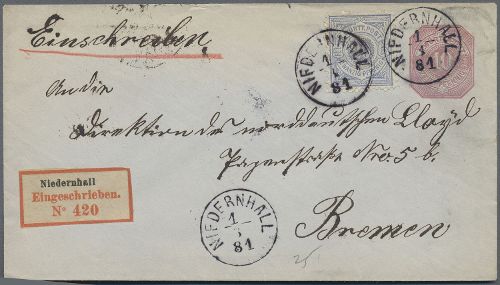 Einschreiben.
NIEDERNHALL
1
81
NIEDERNHALL
1
3
81
An die
Direktion des norddeutschen Lloyd
Papenstraße Nro 5 b.
Niedernhall
Eingeschrieben.
No 420
NIEDERNHALL
1
3
81
Bremen